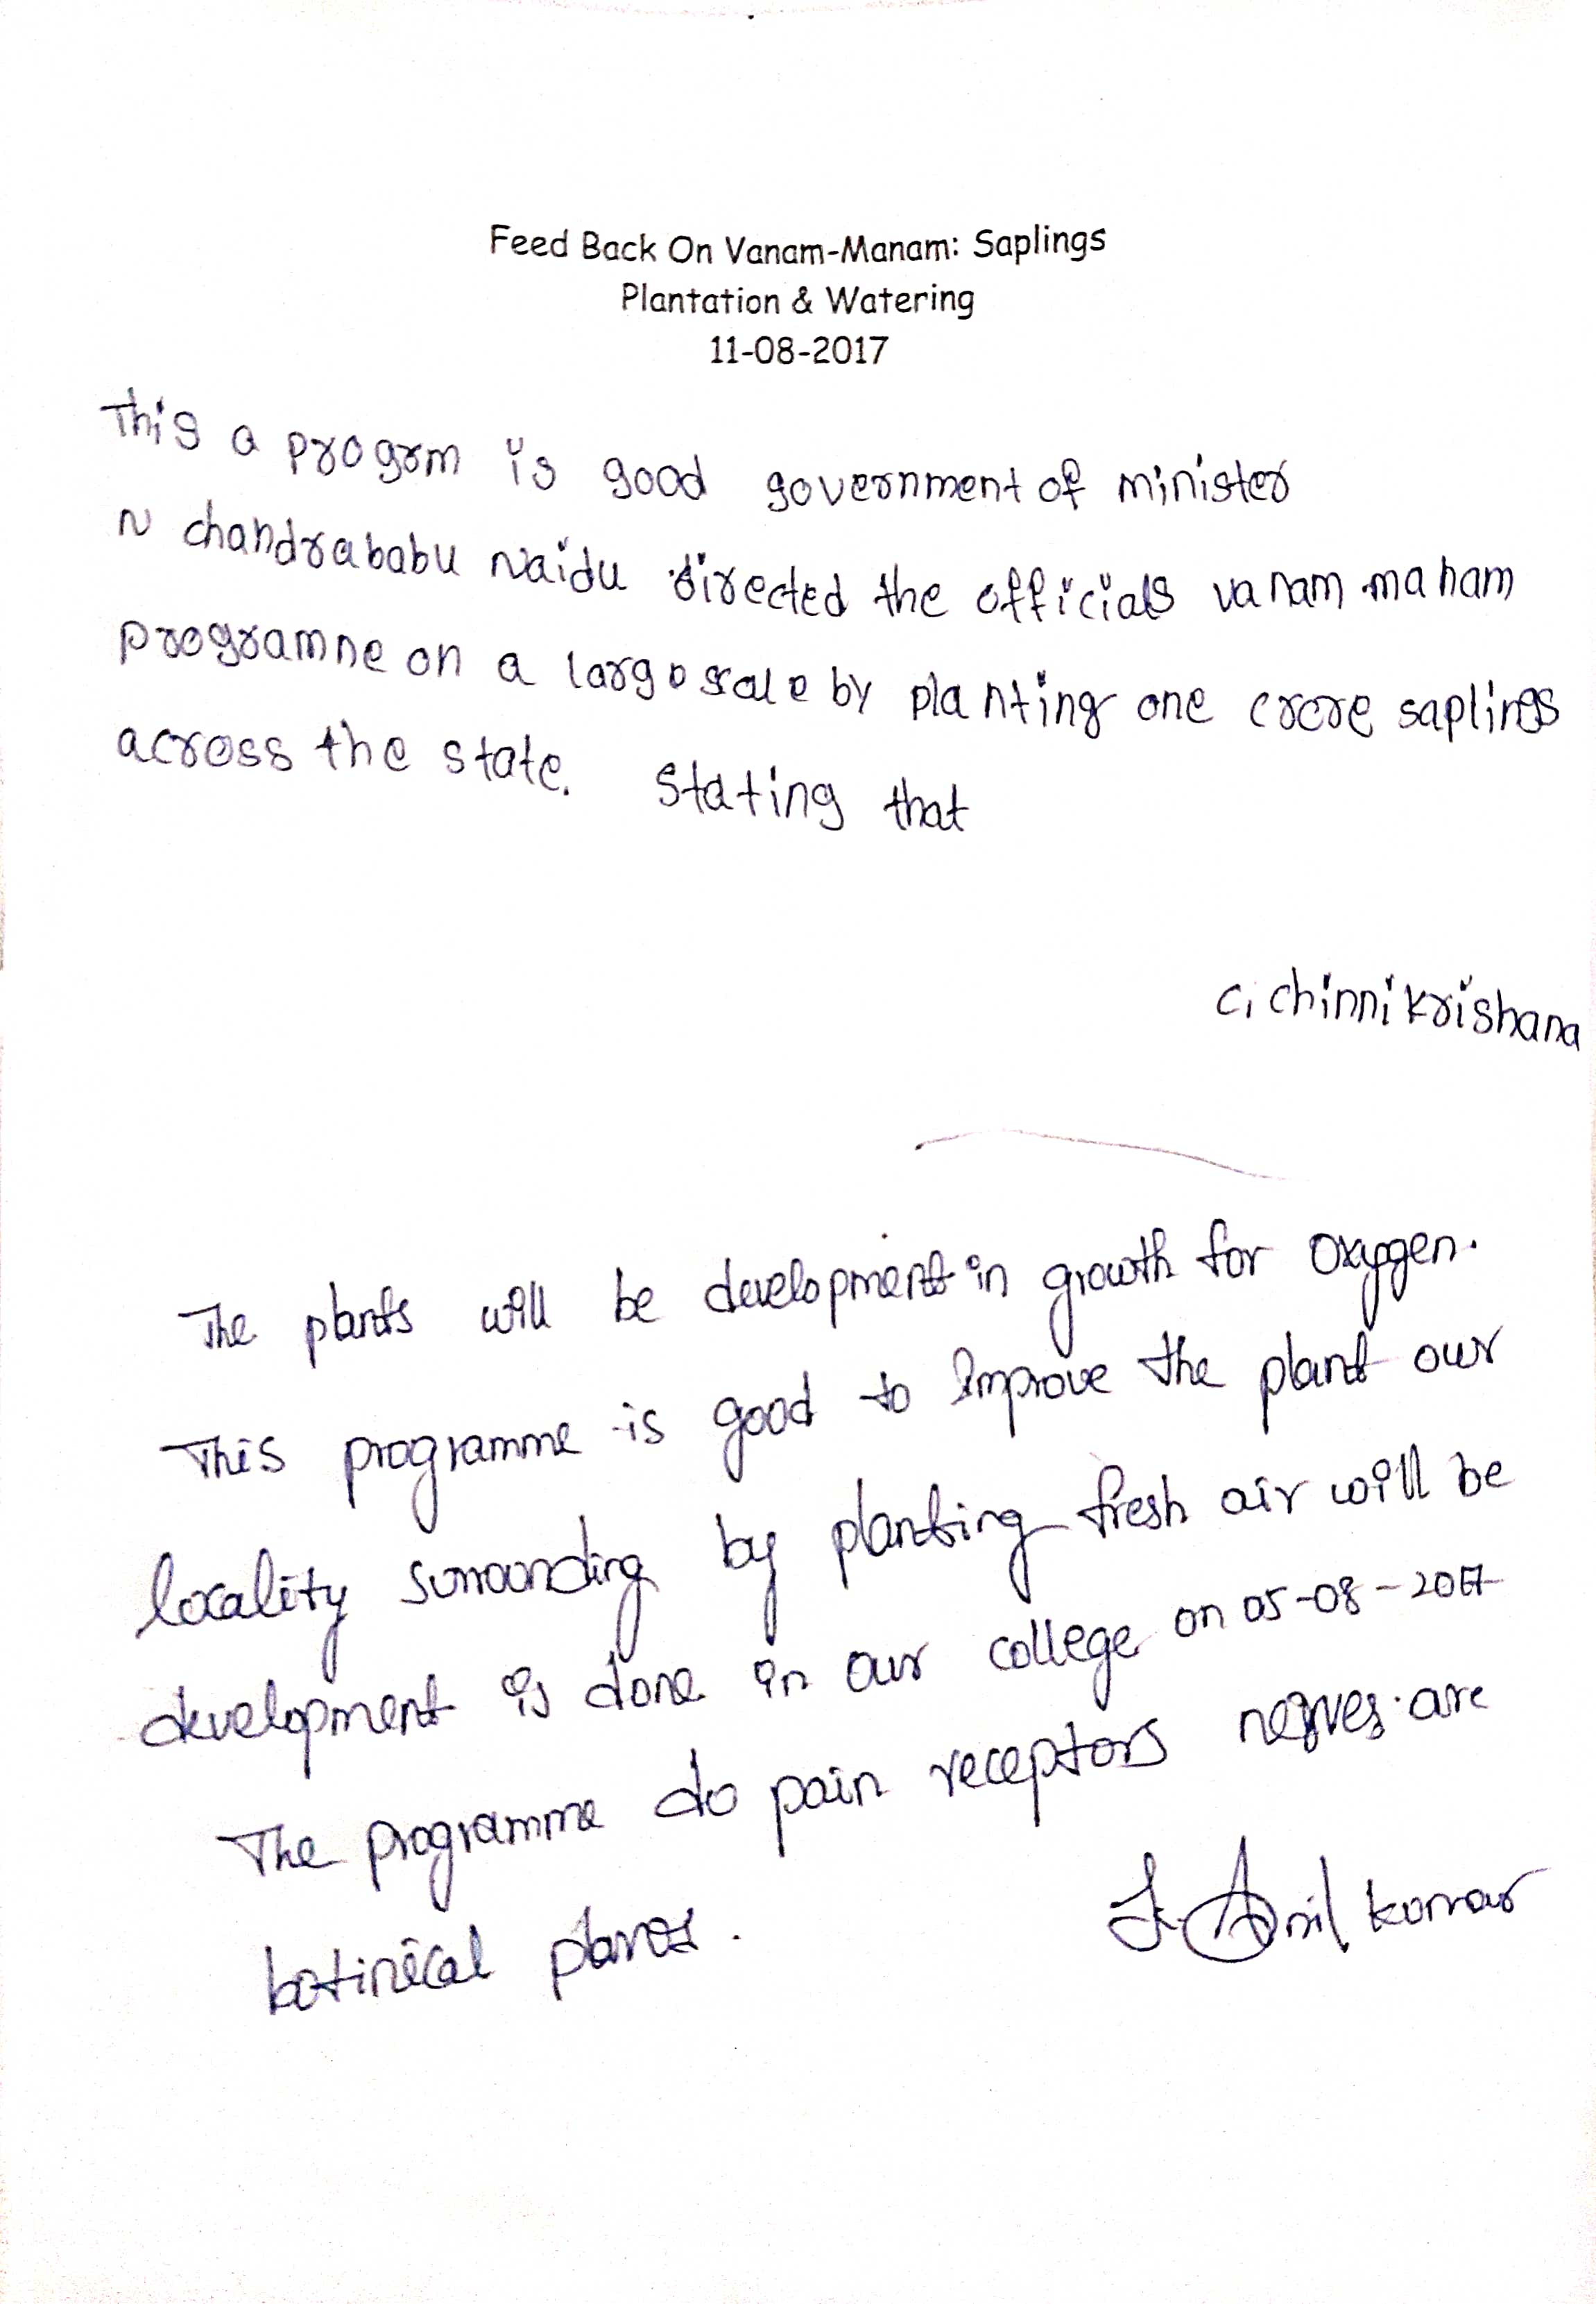 Feed Back On Vanam-Manam: Saplings
Plantation & Watering
11-08-2017
This a progrm is good government of minister
N chandrababu Naidu directed the officials vanam manam
programne on a large scale by planting one crore saplings
across the state. Stating that
C. Chinni Krishana
The plants will be development in growth for oxygen.
This programme is good to Improve the plant our
locality surrounding by planting fresh air will be
development is done in our college on 05-08-2017
The programme do pain receptors nerves are
botinical plants.
J. Anil kumar